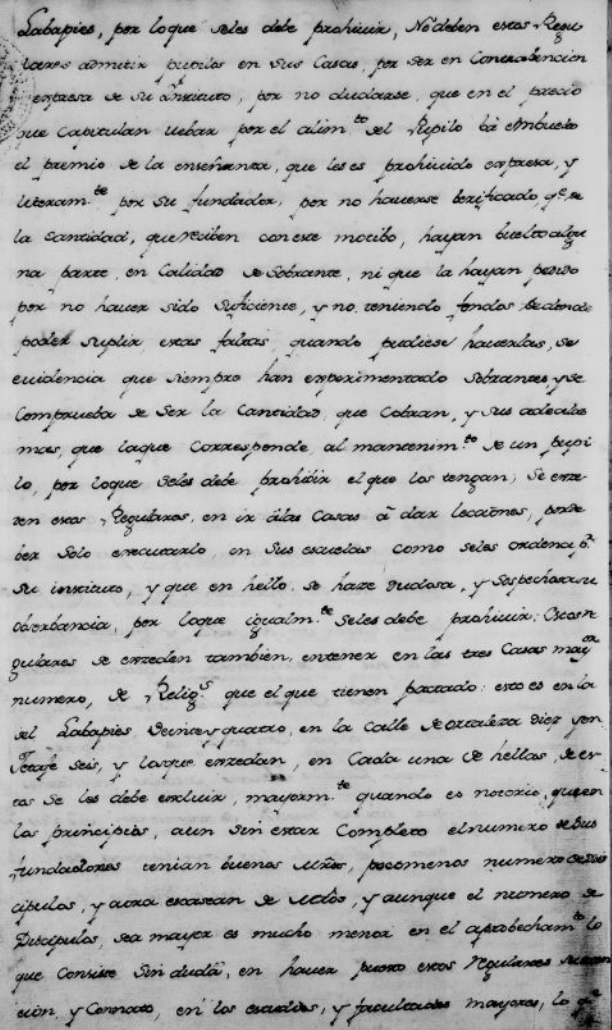 Labapies, por loque seles debe prohivir, No deben estos Regu
lares admitir pupilos en sus Casas, por ser en Contrabencion
expresa de su Instituto, por no dudarse, que en el precio
que Capitulan llebar por el alim.to del Pupilo bá embuelto
el premio de la enseñanza, que les es prohivido expresa, y
literam.te por su fundador, por no haverse berificado, q.e de
la Cantidad, que reciben con este motibo, hayan buelto algu
na parte, en Calidad de Sobrante, ni que la hayan pedido
por no haver sido Suficiente, y no teniendo fondos de donde
poder suplir estas faltas, quando pudiese haverlas, se
evidencia que siempre han experimentado Sobrantes, y se
Comprueba de Ser la Cantidad, que Cobran, y sus adealas
mas, que laque Corresponde, al mantenim.to de un pupi
lo, por loque Seles debe prohivir el que los tengan; Se exze
den estos Regulares, en ir álas Casas á dar lecciones, por de
ber Solo executarlo, en Sus escuelas como seles ordena p.r
Su instituto, y que en hello se haze dudosa, y Sospechosa su
observancia, por loque igualm.te Seles debe prohivir: Estos re
gulares se exzeden tambien, entener en las tres Casas may.or
numero, de Relig.s que el que tienen pactado: esto es en la
del Labapies, Veinte y quatro, en la Calle de ortaleza diez y en
Jetafe seis, y losque exzedan, en Cada una de hellas, de es
tas Se les debe excluir, mayorm.te quando es notorio, que en
los principios, aun Sin estar Completo el numero de sus
fundadores tenian buenos Mños, poco menos numero de Dis
cipulos, y aora escasean de Mños, y aunque el numero de
Discipulos, sea mayor es mucho menor en el aprobecham.to lo
que Consiste Sin duda, en haver puesto estos Regulares su aten
cion, y Connato, en los estudios, y facultades mayores, lo q.e